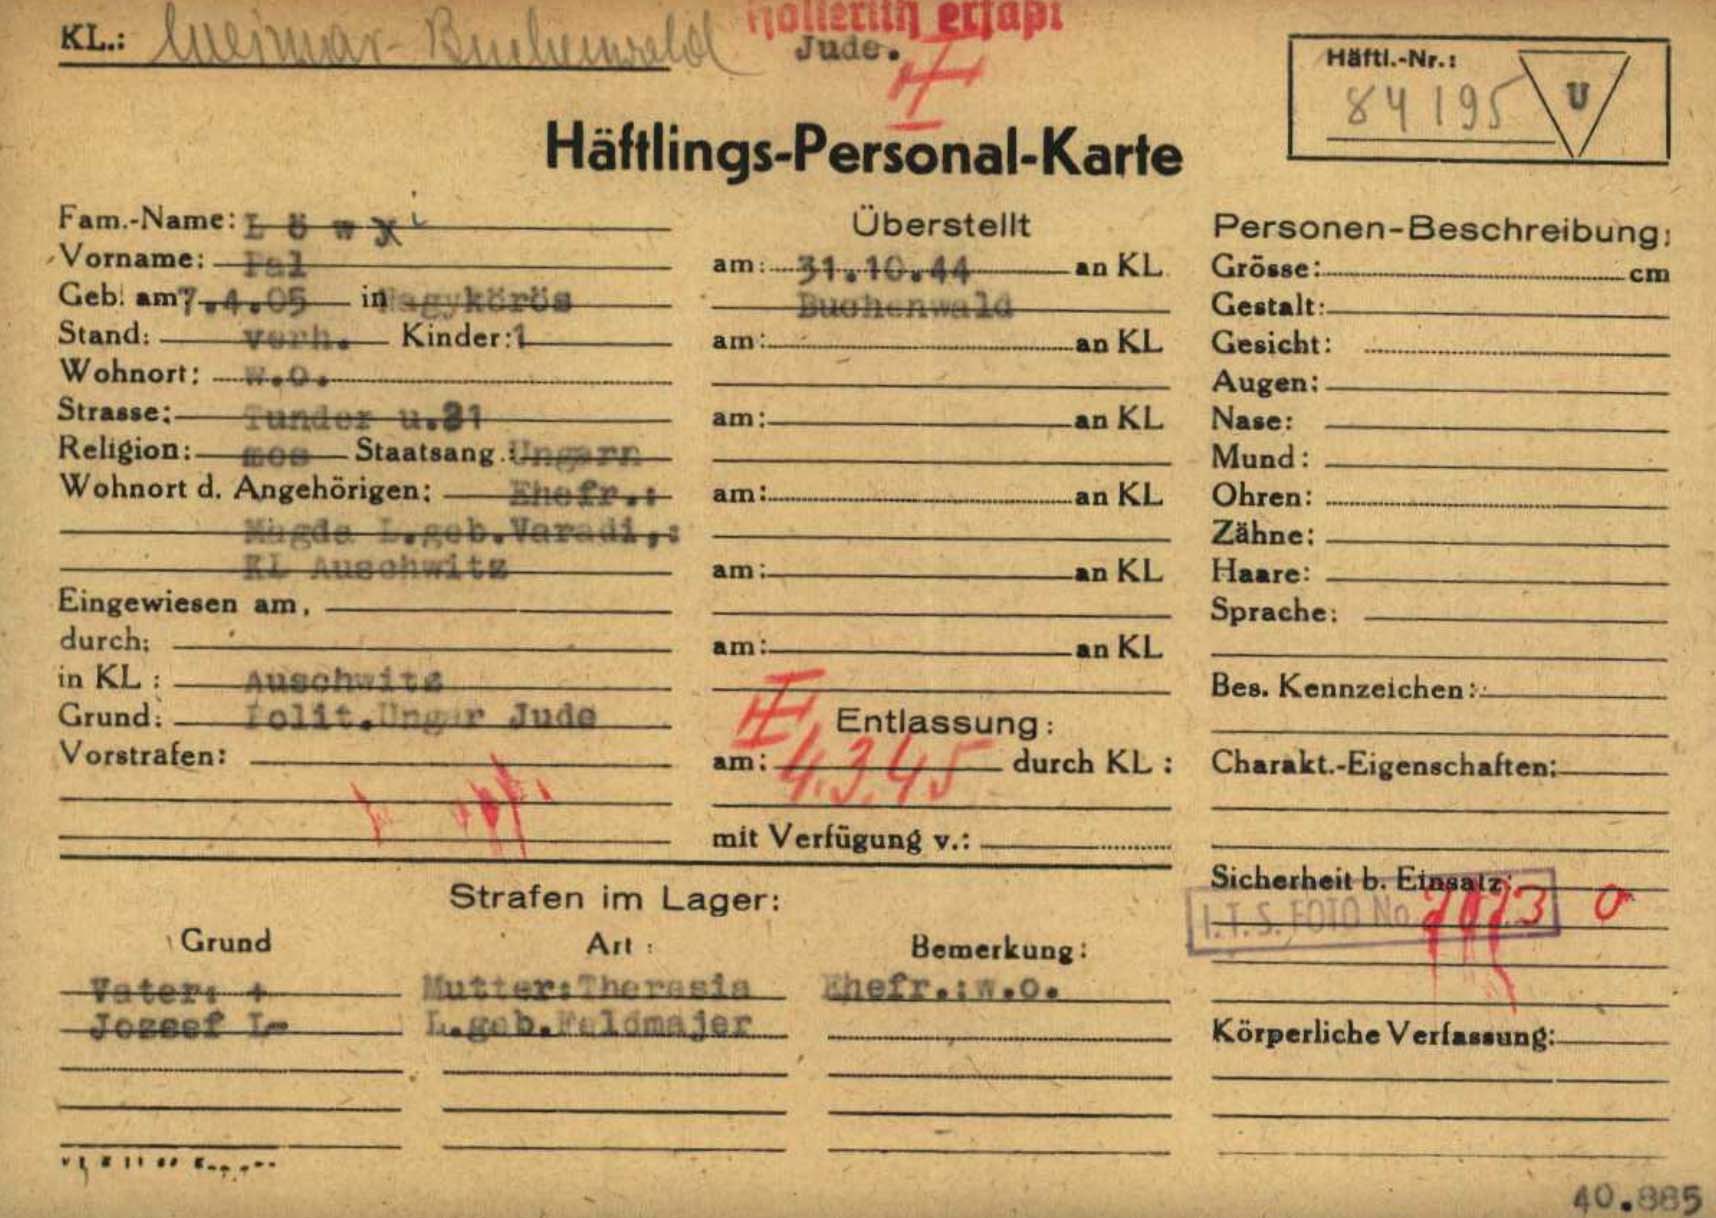 KL.: Weimar-Buchenwald
Hollerith erfaßt
Jude.
Häftl.-Nr.:
84195
U
Häftlings-Personal-Karte
Fam.-Name: L ö w y i
Vorname: Pal
Geb. am 7.4.05 in Nagykörös
Stand: verh. Kinder: 1
Wohnort: w.o.
Strasse: Tunder u.31
Religion: mos Staatsang.: Ungarn
Wohnort d. Angehörigen: Ehefr.:
Magda L.geb.Varadi,:
KL Auschwitz
Eingewiesen am,
durch:
in KL: Auschwitz
Grund: Polit.Ungar Jude
Vorstrafen:
Überstellt
am: 31.10.44 an KL
Buchenwald
am: an KL
am: an KL
am: an KL
am: an KL
am: an KL
Entlassung:
am: 4.3.45 durch KL:
mit Verfügung v.:
Personen-Beschreibung:
Grösse: cm
Gestalt:
Gesicht:
Augen:
Nase:
Mund:
Ohren:
Zähne:
Haare:
Sprache:
Bes. Kennzeichen:
Charakt.-Eigenschaften:
Sicherheit b. Einsatz:
I.T.S. FOTO No
Körperliche Verfassung:
Strafen im Lager:
Grund Art: Bemerkung:
Vater: + Mutter:Therasia Ehefr.:w.o.
Jozsef L- L.geb.Feldmajer
40.885